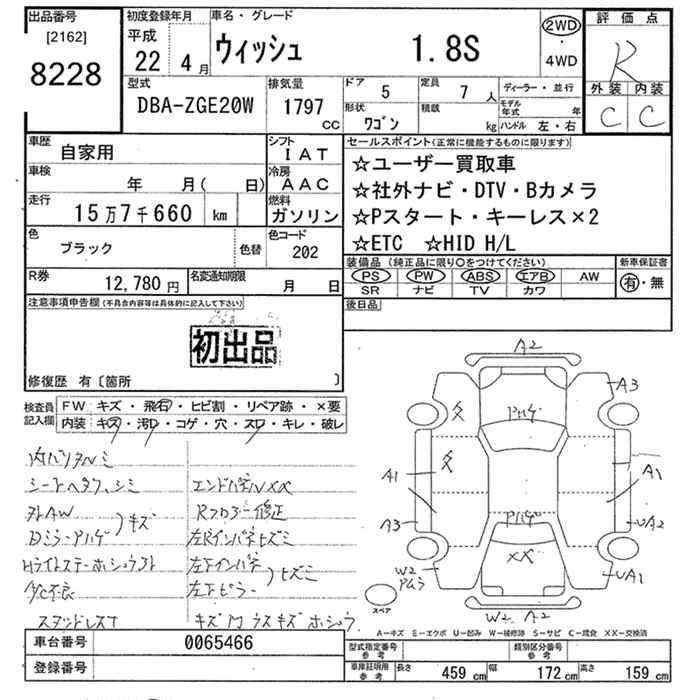 出品番号
[2162]
8228
初度登録年月
平成
22
4月
車名・グレード
ウィッシュ 1.8S
2WD
・
4WD
評価点
R
外装 内装
C C
型式
DBA-ZGE20W
排気量
1797
CC
ドア
5
定員
7 人
形状
ワゴン
積載
kg
ディーラー・並行
モデル
年式
年
ハンドル 左・右
車歴
自家用
シフト
IAT
車検
年 月( 日)
冷房
AAC
走行
15万7千660 km
燃料
ガソリン
色
ブラック
色替
色コード
202
R券
12,780 円
名変通知期限
月 日
セールスポイント(正常に機能するものに限ります)
☆ユーザー買取車
☆社外ナビ・DTV・Bカメラ
☆Pスタート・キーレス×2
☆ETC ☆HID H/L
装備品(純正品に限り○をつけてください)
PS PW ABS エアB AW
SR ナビ TV カワ
新車保証書
有・無
後日品
注意事項申告欄(不具合内容等は具体的に記入して下さい)
初出品
修復歴 有〔箇所 〕
検査員
記入欄
FW キズ・飛石・ヒビ割・リペア跡・×要
内装 キズ・汚レ・コゲ・穴・スレ・キレ・破レ
内ハリタルミ
シートヘタフ、シミ
エンドパネルXX
外AW
キズ
Rフロアー修正
左Rインパネヒズミ
左下インパネ
ヒズミ
左下ピラー
スタッドレスT
A2
A3
ハゲ
A1
A1
A3
UA2
XX
W2
UA1
W2 A2
スペア
A-キズ E-エクボ U-凹み W-補修跡 S-サビ C-腐食 XX-交換済
車台番号
0065466
登録番号
型式指定番号
参考
類別区分番号
参考
車庫証明用
参考
長さ 459 cm 幅 172 cm 高さ 159 cm